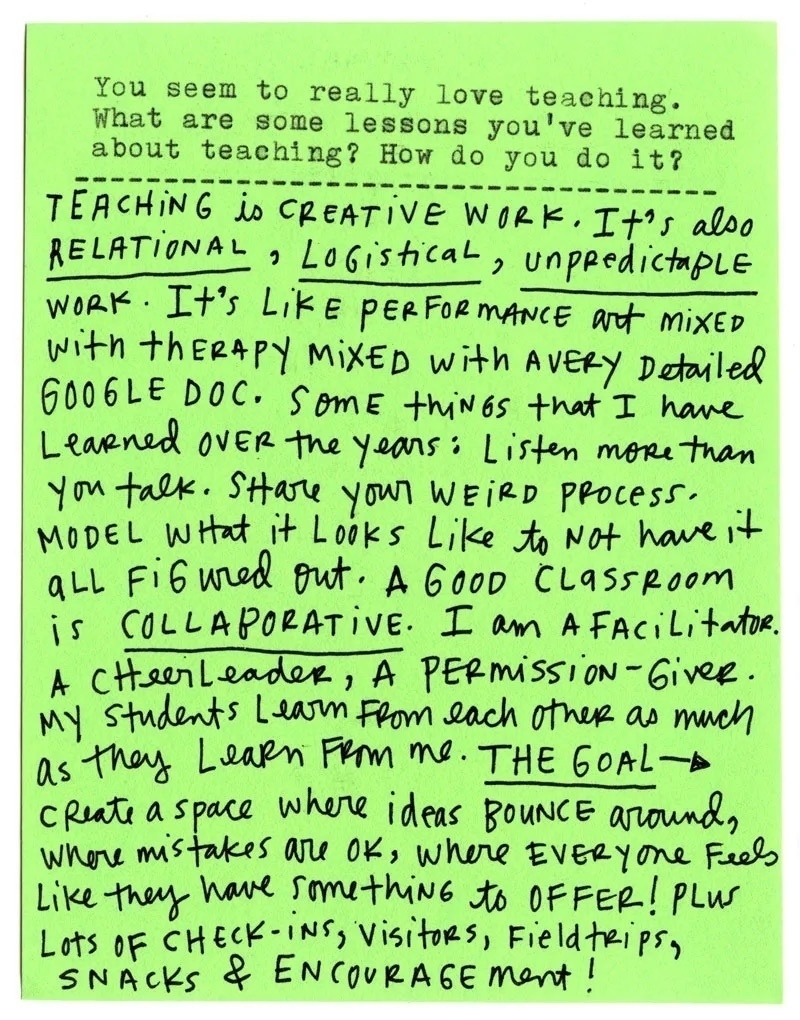 You seem to really love teaching.
What are some lessons you've learned
about teaching? How do you do it?
TEACHING is CREATIVE WORK. It's also
RELATIONAL, LOGISTICAL, UNPREDICTABLE
WORK. It's LIKE PERFORMANCE art MIXED
with THERAPY MIXED with A VERY Detailed
GOOGLE DOC. SOME things that I have
Learned OVER the years: Listen more than
you talk. SHARE your WEIRD PROCESS.
MODEL WHat it LOOKS Like to NOT have it
ALL FIGured out. A GOOD CLASSROOM
is COLLABORATIVE. I am A FACILitator.
A CHeerLeader, A PERMISSION-GIVER.
MY Students Learn FROM each other as much
as they LEARN FROM me. THE GOAL→
CReate a space where ideas BOUNCE around,
where mistakes are OK, where EVERYONE Feels
Like they have SOMETHING to OFFER! PLUS
LOTS OF CHECK-INS, VISITORS, Fieldtrips,
SNACKS & ENCOURAGEMent!